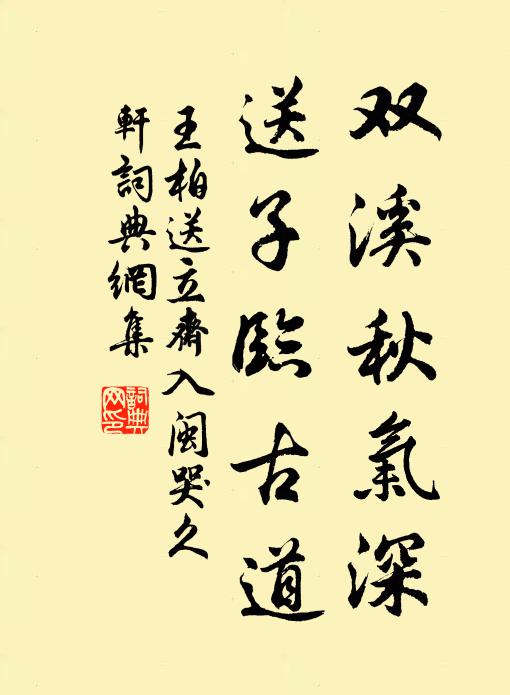 双溪秋氣深
送子臨古道
王柏送立齋入闽哭久
軒詞典網集
詞典网印